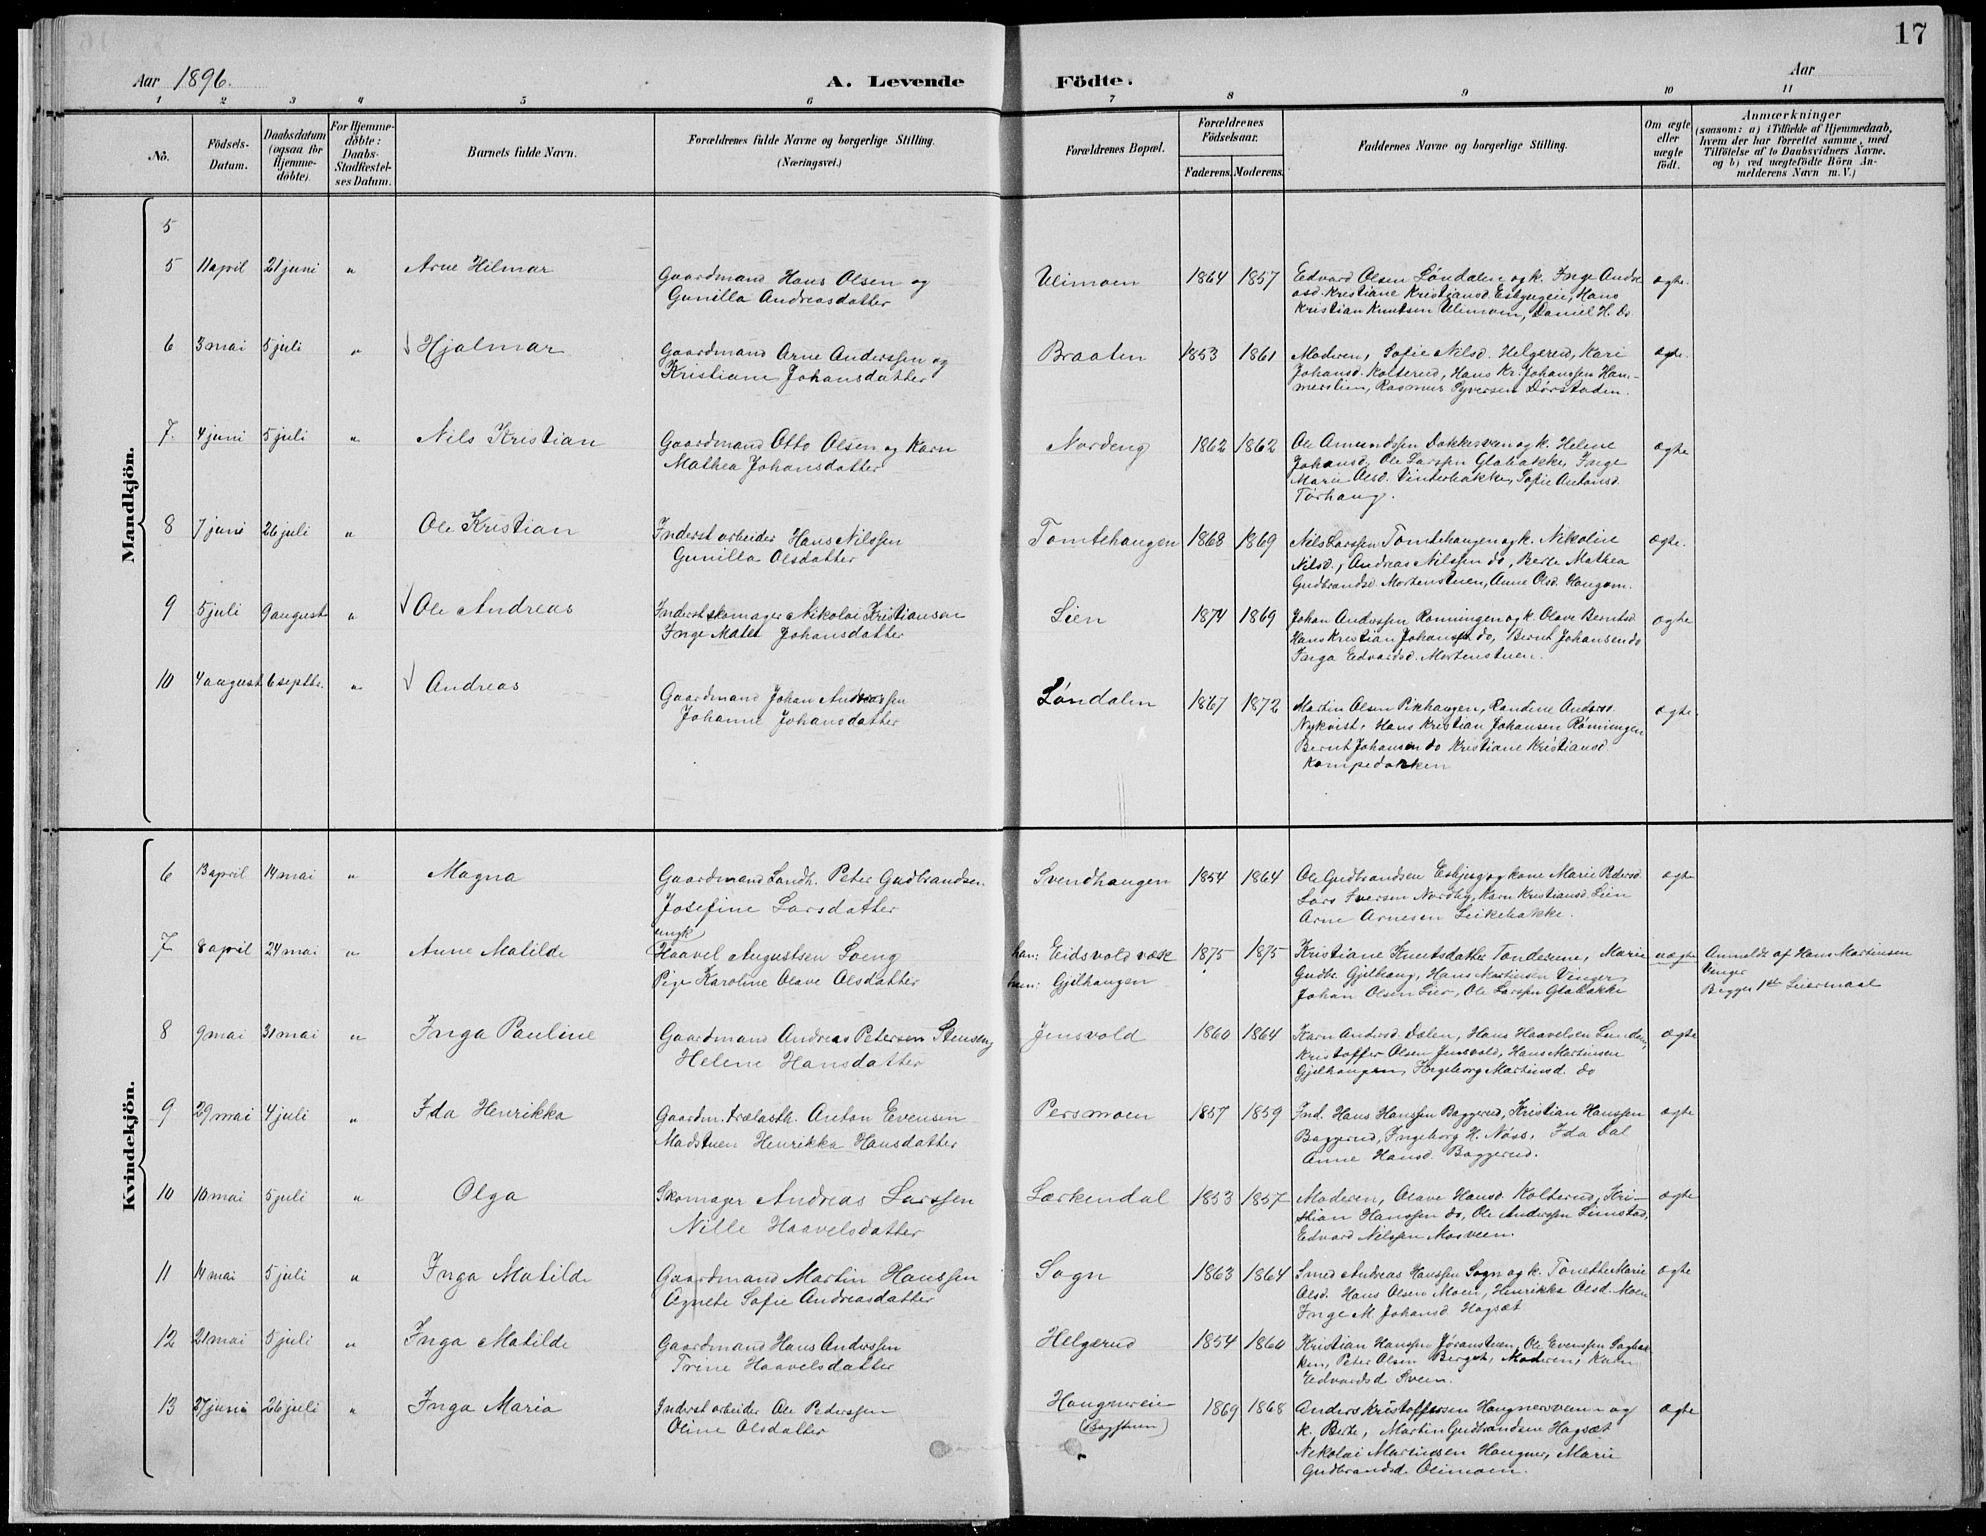 17
Aar 1896. A. Levende Födte. Aar
1 2 3 4 5 6 7 8 9 10 11
No.
Födsels-
Datum.
Daabsdatum
(ogsaa for
Hjemme-
döbte).
For Hjemme-
döbte:
Daabs-
Stadfæstel-
ses Datum.
Barnets fulde Navn.
Forældrenes fulde Navne og borgerlige Stilling.
(Næringsvei.)
Forældrenes Bopæl.
Forældrenes
Födselsaar.
Faderens. Moderens.
Faddernes Navne og borgerlige Stilling.
Om ægte
eller
uægte
födt.
Anmærkninger
(saasom: a) i Tilfælde af Hjemmedaab,
hvem der har forrettet samme, med
Tilföielse af to Daabsvidners Navne,
og b) ved uægtefödte Börn An-
melderens Navn m. V.)
Mandkjön.
5
5 11 april 21 juni " Arne Hilmar
Gaardmand Hans Olsen og
Gunilla Andreasdatter
Ulimoen 1864 1857
Edvard Olsen Løndalen og k. Inge Andre
asd. Kristiane Kristiansd. Esbjugen, Hans
Kristian Knutsen Ulimoen, Daniel H. do
ægte.
6 3 mai 5 juli " Hjalmar
Gaardmand Arne Anderssen og
Kristiane Johansdatter
Braaten 1853 1861
Moderen, Sofie Nilsd. Helgerud, Kari
Johansd. Kolterud, Hans Kr. Johanssen Ham-
merstien, Rasmus Syversen Dørstaden.
ægte.
7. 4 juni 5 juli " Nils Kristian
Gaardmand Otto Olsen og Karn
Mathea Johansdatter
Nordeng 1862 1862
Ole Amundssen Dokkesveen og k. Helene
Johansd, Ole Larssen Glabakke, Inge
Marie Olsd. Vinterbakke, Sofie Antonsd.
Torhaug.
ægte
8 7 juni 26 juli " Ole Kristian
Inderst arbeider Hans Nilssen
Gunilla Olsdatter
Tomtehaugen 1868 1869
Nils Larssen Tomtehaugen og k. Nikoline
Nilsd, Andreas Nilssen do, Berte Mathea
Gudbrandsd. Mortenstuen, Anne Olsd. Haugom.
ægte.
9 5 juli 9 august " Ole Andreas
Inderst skomager Nikolai Kristiansen
Inge Matea Johansdatter
Lien 1874 1869
Johan Anderssen Rønningen og k. Olave Berntsd.
Hans Kristian Johanssen do, Bernt Johansen do
Inga Edvardsd. Mortenstuen.
ægte
10 4 august 6 septbr. " Andreas
Gaardmand Johan Anderssen
Johanne Johansdatter
Løndalen 1867 1872
Martin Olsen Pikhaugen, Randine Andersd.
Nykvist, Hans Kristian Johansen Rønningen
Bernt Johansen do Kristiane Kristiansd.
Kampedokken
ægte
Kvindekjön.
6 13 april 14 mai " Magna
Gaardmand Landh. Peter Gudbrandsen
Josefine Larsdatter
Svendhaugen 1854 1864
Ole Gudbrandsen Esbjug og kone Marie Pedersd
Lars Iversen Nordby, Karn Kristiansd. Lien
Arne Arnesen Leikebakke.
ægte
7 8 april 24 mai " Anne Matilde
ungk
Haavel Augustsen Loeng
Pige Karoline Olave Olsdatter
han: Eidsvold værk
hun: Gjelhaugen
1875 1875
Kristiane Knutsdatter Tonderene, Marie
Gudbr. Gjelhaug, Hans Martinsen Vinger,
Johan Olsen Lier, Ole Larssen Glabakke
uægte
Anmeldt af Hans Martinsen
Vinger
Begges 1ste Leiermaal
8 9 mai 31 mai " Inga Pauline
Gaardmand Andreas Petersen Stenseng
Helene Hansdatter
Jensvold 1860 1864
Karn Andersd. Dalen, Hans Haavelsen Lunden,
Kristoffer Olsen Jensvold, Hans Martinsen
Gjelhaugen, Ingeborg Martinsd. do
ægte
9 29 mai 4 juli " Ida Henrikka
Gaardm. trælasth. Anton Evensen
Madstuen Henrikka Hansdatter
Persmoen 1857 1859
Ind. Hans Hanssen Baggerud, Kristian Hanssen
Baggerud, Ingeborg H. Næss, Ida Dal
Anne Hansd. Baggerud.
ægte
10 10 mai 5 juli " Olga
Skomager Andreas Larssen
Nille Haavelsdatter
Lærkendal 1853 1857
Moderen, Olave Hansd. Kolterud, Kri-
stian Hanssen do, Ole Anderssen Linstad,
Edvard Nilssen Mosveen.
ægte
11 14 mai 5 juli " Inga Matilde
Gaardmand Martin Hanssen
Agnete Sofie Andreasdatter
Sogn 1863 1864
Smed Andreas Hanssen Sogn og k. Tonette Marie
Olsd. Hans Olsen Moen, Henrikka Olsd. Moen
Inge M. Johansd. Hagsæt
ægte
12 21 mai 5 juli " Inga Matilde
Gaardmand Hans Anderssen
Trine Haavelsdatter
Helgerud 1854 1860
Kristian Hanssen Jøranstuen, Ole Evenssen Sagbak
ken, Peter Olsen Berget, Moderen, Karn
Edvardsd Sveen.
ægte
13 27 juni 26 juli " Inga Maria
Inderst arbeider Ole Pederssen
Oline Olsdatter
Haugnereie
(Bagstuen)
1869 1868
Anders Kristoffersen Haugnersveen og
k. Berte, Martin Gudbrandsen Hagsæt
Nikolai Martinsen Haugner, Marie
Gudbrandsd. Olimoen.
ægte